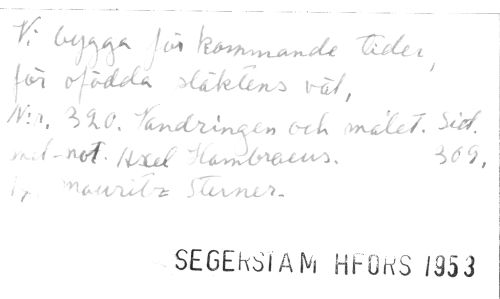 Vi bygga för kommande tider,
för ofödda släktens väl,
N:r. 320. Vandringen och målet. Sid.
not. Axel Hambraeus. 309,
Mauritz Sterner.
SEGERSTAM HFORS 1953